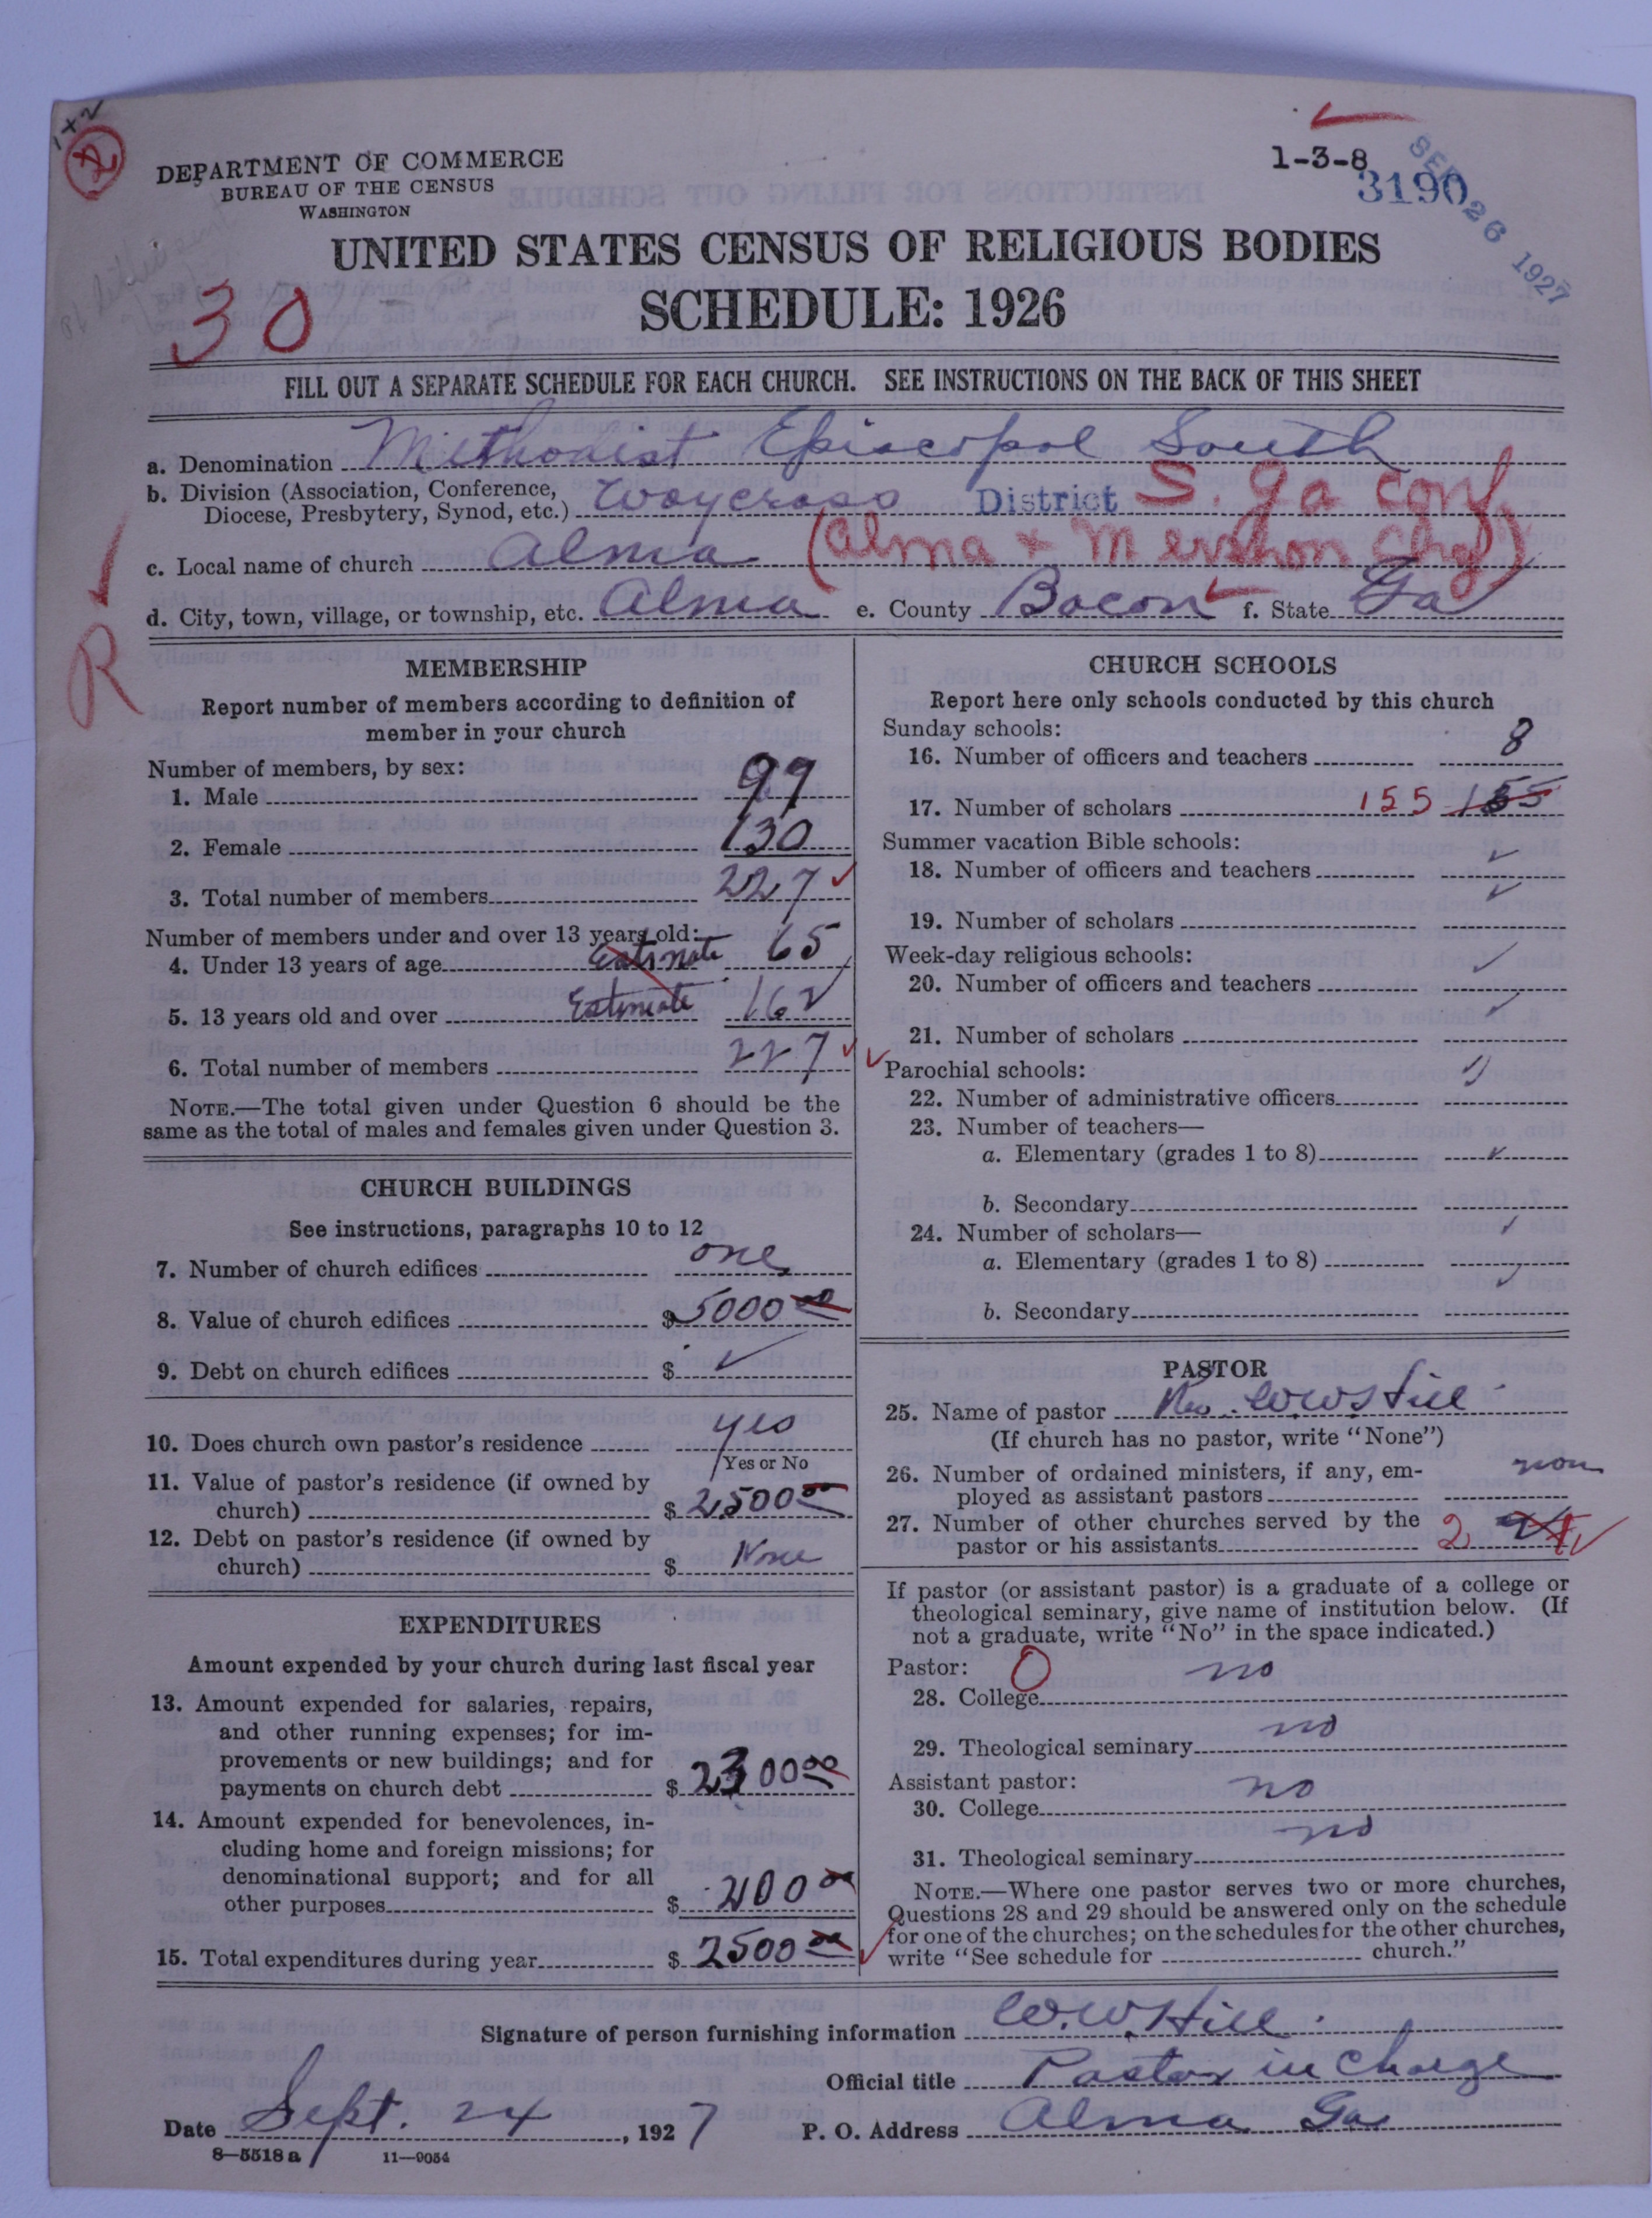 1+2
DEPARTMENT OF COMMERCE
BUREAU OF THE CENSUS
WASHINGTON
1-3-8
3190
SEP 26 1927
UNITED STATES CENSUS OF RELIGIOUS BODIES
SCHEDULE: 1926
30
FILL OUT A SEPARATE SCHEDULE FOR EACH CHURCH. SEE INSTRUCTIONS ON THE BACK OF THIS SHEET
a. Denomination Methodist Episcopal South
b. Division (Association, Conference,
Diocese, Presbytery, Synod, etc.) Waycross District S. Ga Conf
c. Local name of church Alma (Alma + Mershon Chg)
d. City, town, village, or township, etc. Alma e. County Bacon f. State Ga
R
MEMBERSHIP
Report number of members according to definition of
member in your church
Number of members, by sex:
1. Male 99
2. Female 130
3. Total number of members 227
Number of members under and over 13 years old:
4. Under 13 years of age Estimate 65
5. 13 years old and over Estimate 162
6. Total number of members 227
NOTE.—The total given under Question 6 should be the
same as the total of males and females given under Question 3.
CHURCH BUILDINGS
See instructions, paragraphs 10 to 12
7. Number of church edifices one
8. Value of church edifices $ 5000 00
9. Debt on church edifices $
10. Does church own pastor's residence yes
Yes or No
11. Value of pastor's residence (if owned by
church) $ 2500 00
12. Debt on pastor's residence (if owned by
church) $ None
EXPENDITURES
Amount expended by your church during last fiscal year
13. Amount expended for salaries, repairs,
and other running expenses; for im-
provements or new buildings; and for
payments on church debt $ 2300 00
14. Amount expended for benevolences, in-
cluding home and foreign missions; for
denominational support; and for all
other purposes $ 200 00
15. Total expenditures during year $ 2500 00
CHURCH SCHOOLS
Report here only schools conducted by this church
Sunday schools:
16. Number of officers and teachers 8
17. Number of scholars 155 155
Summer vacation Bible schools:
18. Number of officers and teachers
19. Number of scholars
Week-day religious schools:
20. Number of officers and teachers
21. Number of scholars
Parochial schools:
22. Number of administrative officers
23. Number of teachers—
a. Elementary (grades 1 to 8)
b. Secondary
24. Number of scholars—
a. Elementary (grades 1 to 8)
b. Secondary
PASTOR
25. Name of pastor Rev. W W Hill
(If church has no pastor, write "None")
26. Number of ordained ministers, if any, em-
ployed as assistant pastors non
27. Number of other churches served by the
pastor or his assistants 2
If pastor (or assistant pastor) is a graduate of a college or
theological seminary, give name of institution below. (If
not a graduate, write "No" in the space indicated.)
Pastor: O
28. College no
29. Theological seminary no
Assistant pastor:
30. College no
31. Theological seminary no
NOTE.—Where one pastor serves two or more churches,
Questions 28 and 29 should be answered only on the schedule
for one of the churches; on the schedules for the other churches,
write "See schedule for church."
Signature of person furnishing information W. W. Hill
Official title Pastor in Charge
Date Sept. 24, 1927 P. O. Address Alma Ga
8—5518 a 11—9054